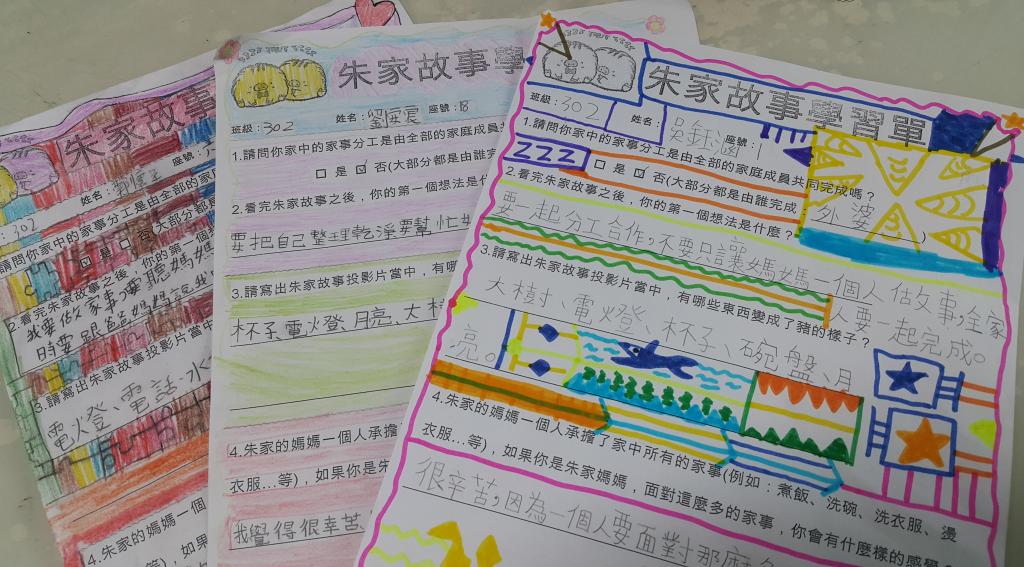 朱家故事
座號:
姓名:
:302
請問你家中的家事分工是由全部的家庭
是 否(大部分都是
2.看完朱家故事之後,你的第一個
我要做家事,要聽媽媽
時要跟爸爸媽媽說我
3.請寫出朱家故事投影片當中
電燈、電話、水
4.朱家的媽媽一個
等),如果你是
朱家故事學
班級:302 姓名: 座號:18
1.請問你家中的家事分工是由全部的家庭成員
是 否(大部分都是由誰完
2.看完朱家故事之後,你的第一個想法是什
要把自己整理乾淨要幫忙
3.請寫出朱家故事投影片當中,有哪
杯子、電燈、月亮、大
4.朱家的媽媽一個人承擔
衣服...等),如果你是朱
我覺得很辛苦
朱家故事學習單
班級:302 姓名: 座號:1
1.請問你家中的家事分工是由全部的家庭成員共同完成嗎?
ZZZ 是 否(大部分都是由誰完成: 外婆 )
2.看完朱家故事之後,你的第一個想法是什麼?
要一起分工合作,不要只讓媽媽一個人做故事,全家
人要一起完成。
3.請寫出朱家故事投影片當中,有哪些東西變成了豬的樣子?
大樹、電燈、杯子、碗盤、月
亮。
4.朱家的媽媽一個人承擔了家中所有的家事(例如:煮飯、洗碗、洗衣服、燙
衣服...等),如果你是朱家媽媽,面對這麼多的家事,你會有什麼樣的感
很辛苦,因為一個人要面對那麼